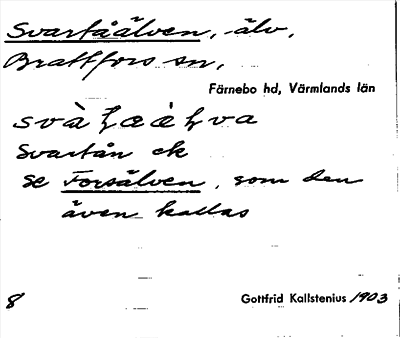 Svartåälven, älv,
Brattfors sn,
Färnebo hd, Värmlands län
Svartån ek
se Forsälven, som den
även kallas
8
Gottfrid Kallstenius 1903